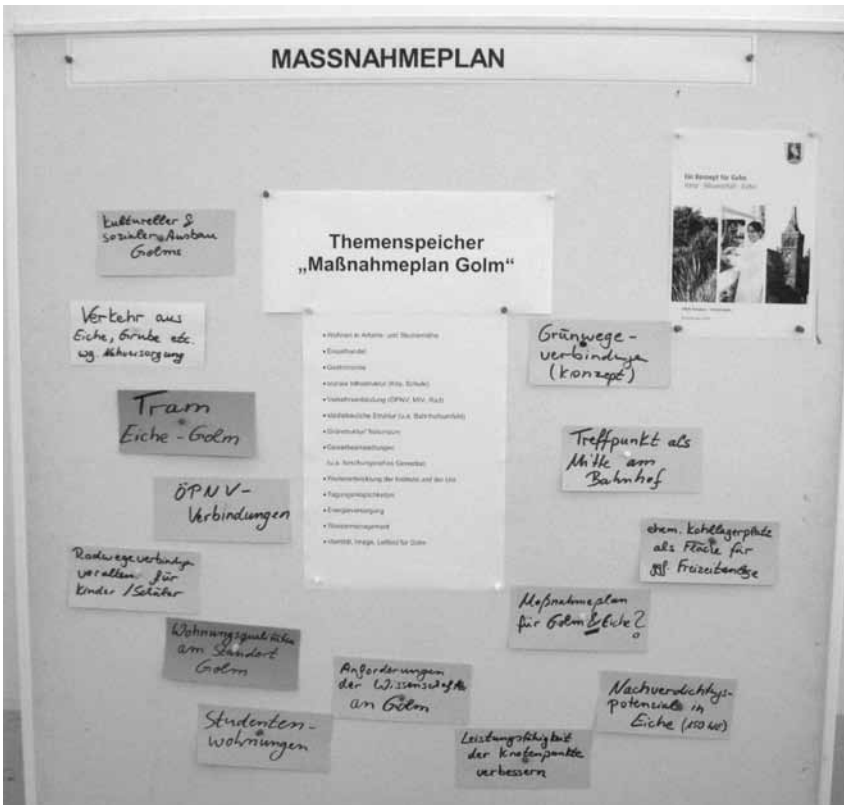 MASSNAHMEPLAN
Ein Konzept für Golm
Themenspeicher
„Maßnahmeplan Golm“
• Wohnen in Arbeits- und Naturnähe
• Einzelhandel
• Gastronomie
• soziale Infrastruktur (Kita, Schule)
• Verkehrsanbindung (ÖPNV, MIV, Rad)
• städtebauliche Struktur (u.a. Bahnhofsumfeld)
• Grünstruktur/ Naturraum
• Gewerbeansiedlungen
(u.a. forschungsnahes Gewerbe)
• Weiterentwicklung der Institute und der Uni
• Tagungsmöglichkeiten
• Energieversorgung
• Wassermanagement
• Identität, Image, Leitbild für Golm
kultureller &
sozialer Ausbau
Golms
Verkehr aus
Eiche, Grube etc.
wg. Nahversorgung
Tram
Eiche - Golm
ÖPNV-
Verbindungen
Radwegeverbindungen
vor allem für
Kinder / Schüler
Wohnungsqualitäten
am Standort
Golm
Studenten-
wohnungen
Anforderungen
der Wissenschaften
an Golm
Leistungsfähigkeit
der Knotenpunkte
verbessern
Grünwege-
verbindungen
(Konzept)
Treffpunkt als
Mitte am
Bahnhof
ehem. Kohlelagerplatz
als Fläche für
ggf.
Maßnahmeplan
für Golm & Eiche?
Nachverdichtungs-
potenziale in
Eiche (150 WE)